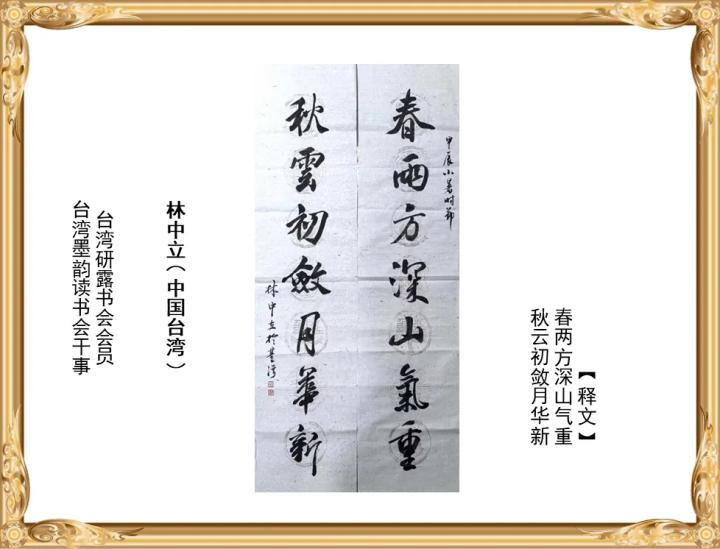 【释文】
春两方深山气重
秋云初敛月华新
甲辰小暑时节
春雨方深山氣重
秋雲初斂月華新
林中立於臺灣
林中立（中国台湾）
台湾研露书会会员
台湾墨韵读书会干事